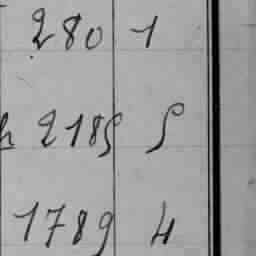 280 1
2185 5
1789 4